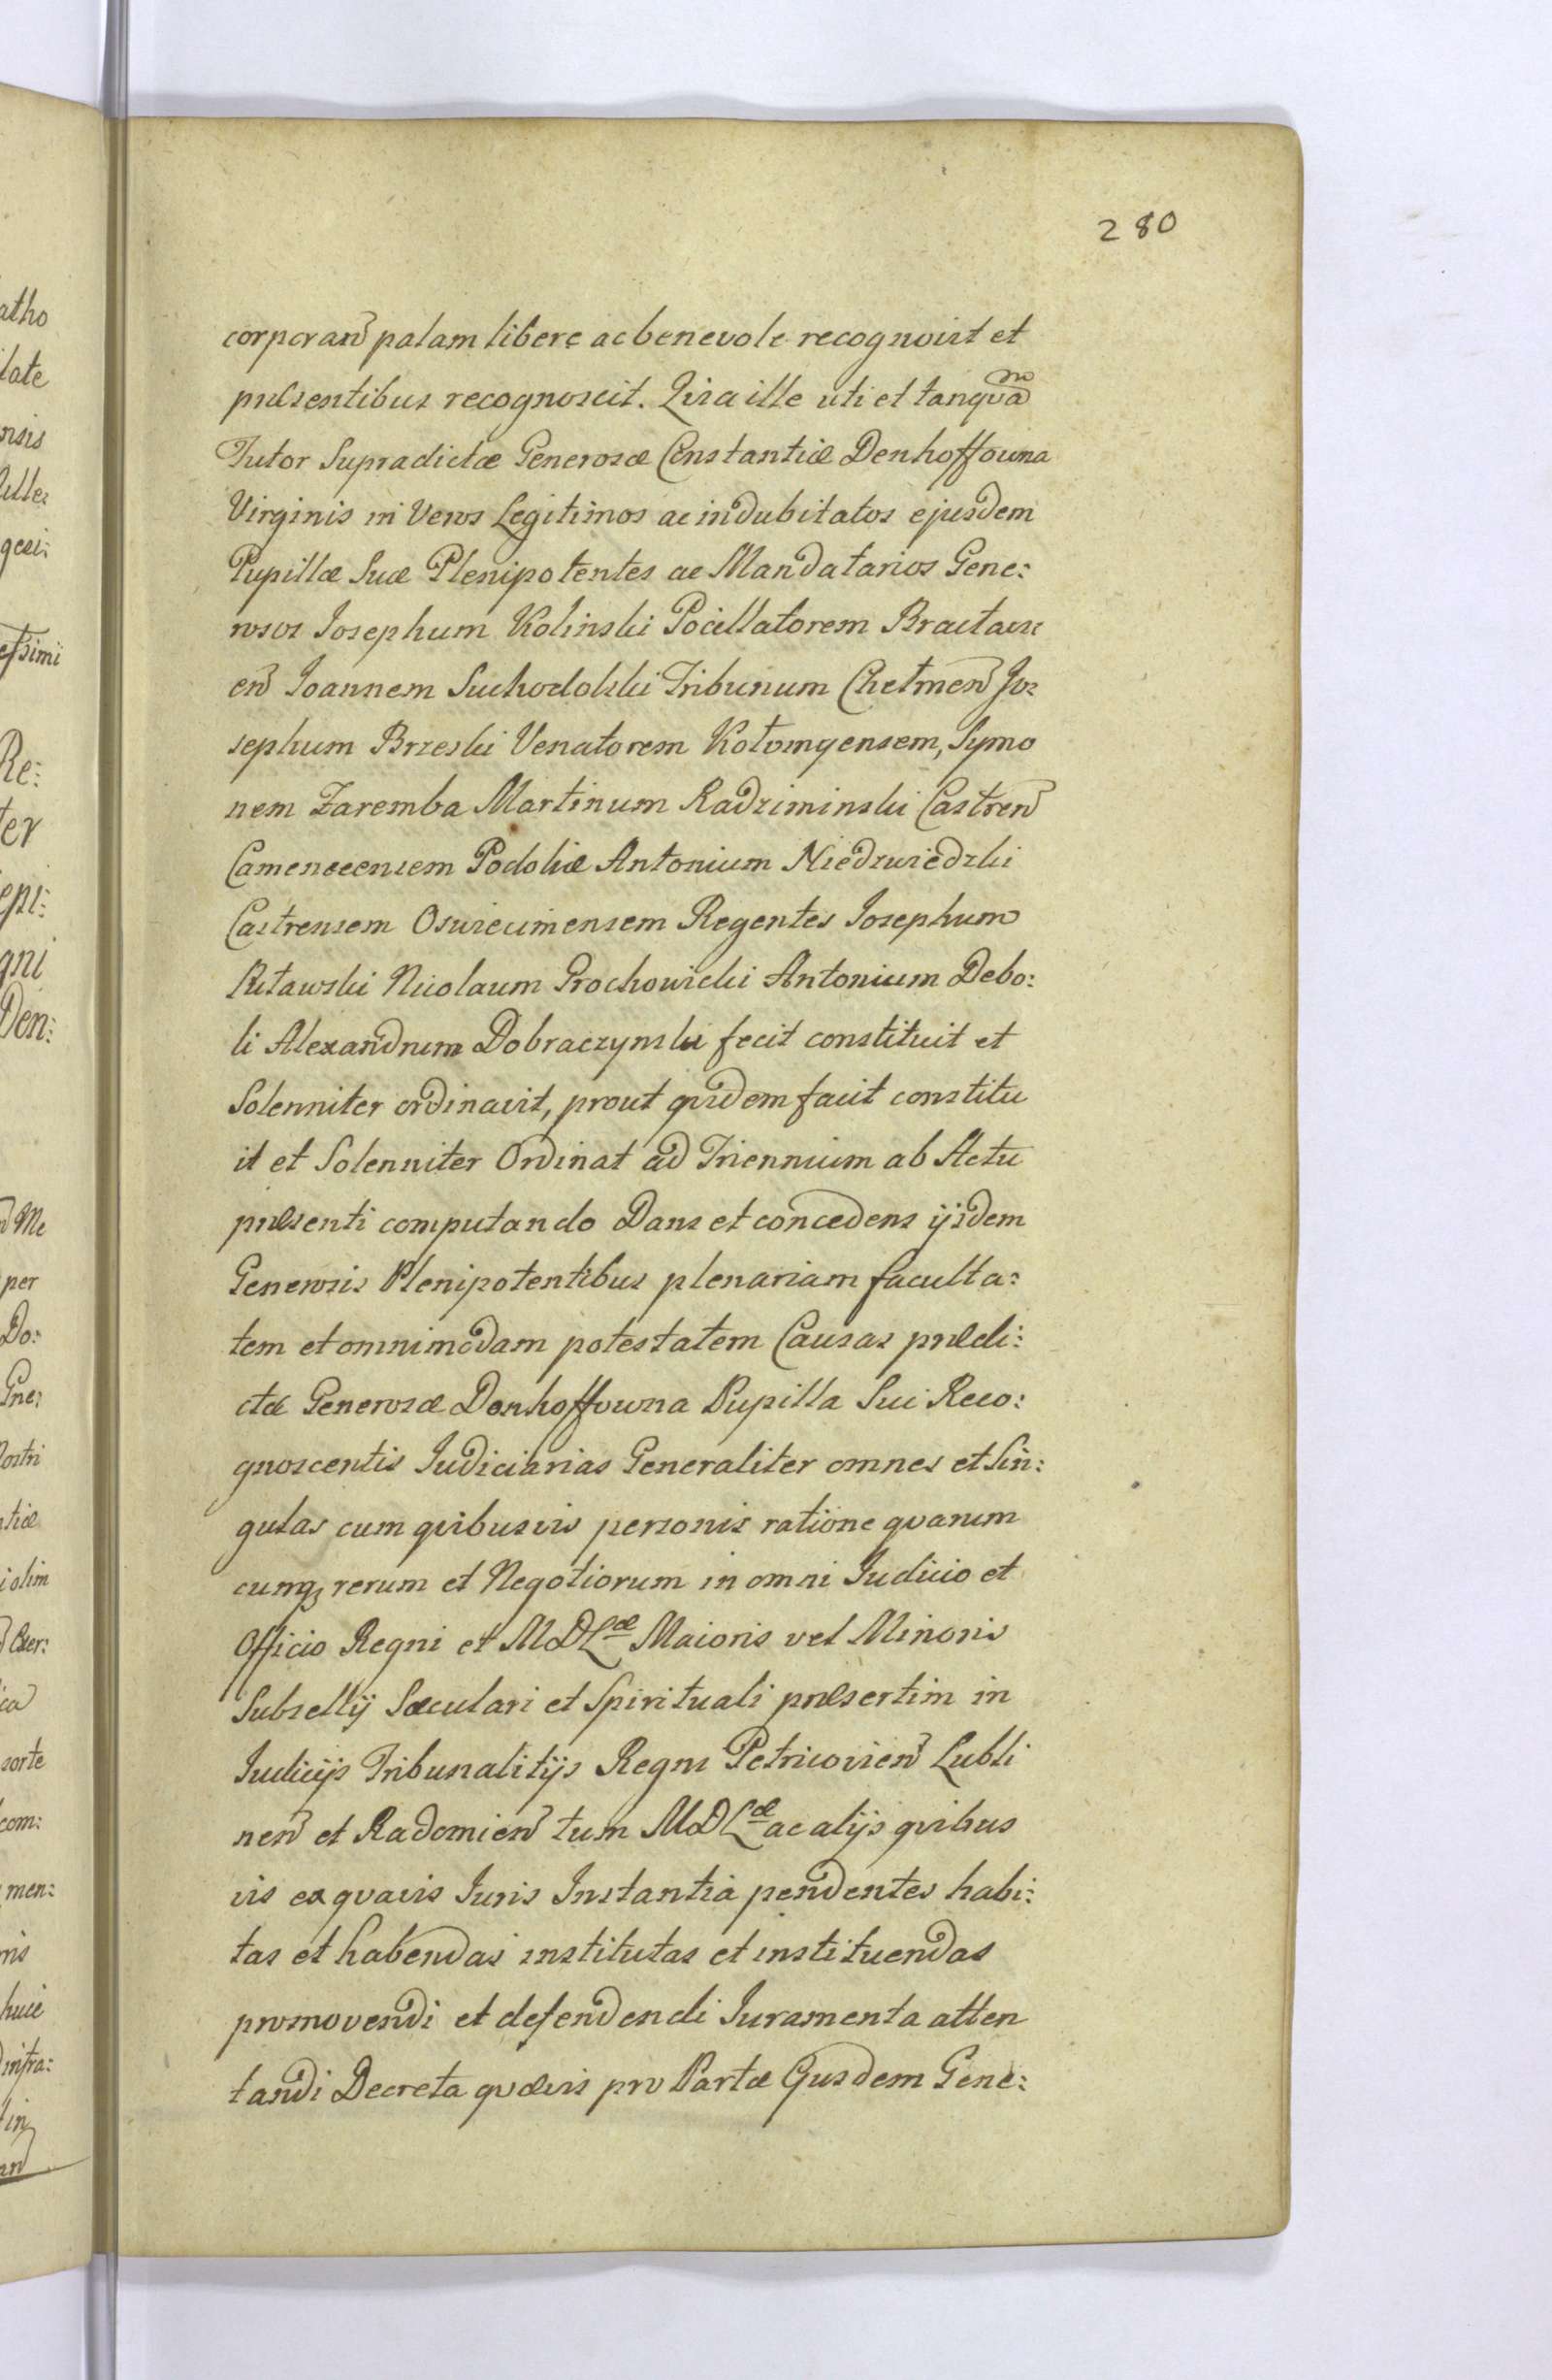 280
corporan palam libere ac benevole recognovit et
præsentibus recognoscit. Quia ille uti et tanqvam
Tutor Supradictæ Generosæ Constantiæ Denhoffowna
Virginis in Veros Legitimos ac indubitatos ejusdem
Pupillæ Suæ Plenipotentes ac Mandatarios Gene:
rosos Iosephum Kolinski Pocillatorem Bractavi
en Ioannem Suchodolski Tribunum Chełmen Jo:
sephum Brzeski Venatorem Kołomyensem, Symo
nem Zaremba Martinum Radziminski Castren
Camenecensem Podoliæ Antonium Niedzwiedzki
Castrensem Oswiecimensem Regentes Iosephum
Rutawski Nicolaum Prochowicki Antonium Debo:
li Alexandrum Dobraczynski fecit constituit et
Solenniter ordinavit, prout qvidem facit constitu
it et Solenniter Ordinat ad Triennium ab Actu
præsenti computando Dans et concedens ijsdem
Generosis Plenipotentibus plenariam faculta:
tem et omnimodam potestatem Causas prædi:
ctæ Generosæ Denhoffowna Pupilla Sui Reco:
gnoscentis Iudiciarias Generaliter omnes et Sin:
gulas cum qvibusvis personis ratione qvarum
cumq; rerum et Negotiorum in omni Iudicio et
Officio Regni et MDLæ Maioris vel Minoris
Subsellij Sæculari et Spirituali præsertim in
Iudicijs Tribunalitijs Regni Petricovien Lubli
nen et Radomien tum MDLæ ac alijs qvibus
vis ex qvavis Iuris Instantia pendentes habi:
tas et habendas institutas et instituendas
promovendi et defendendi Iuramenta atten
tandi Decreta qvævis pro Parte Ejusdem Gene: